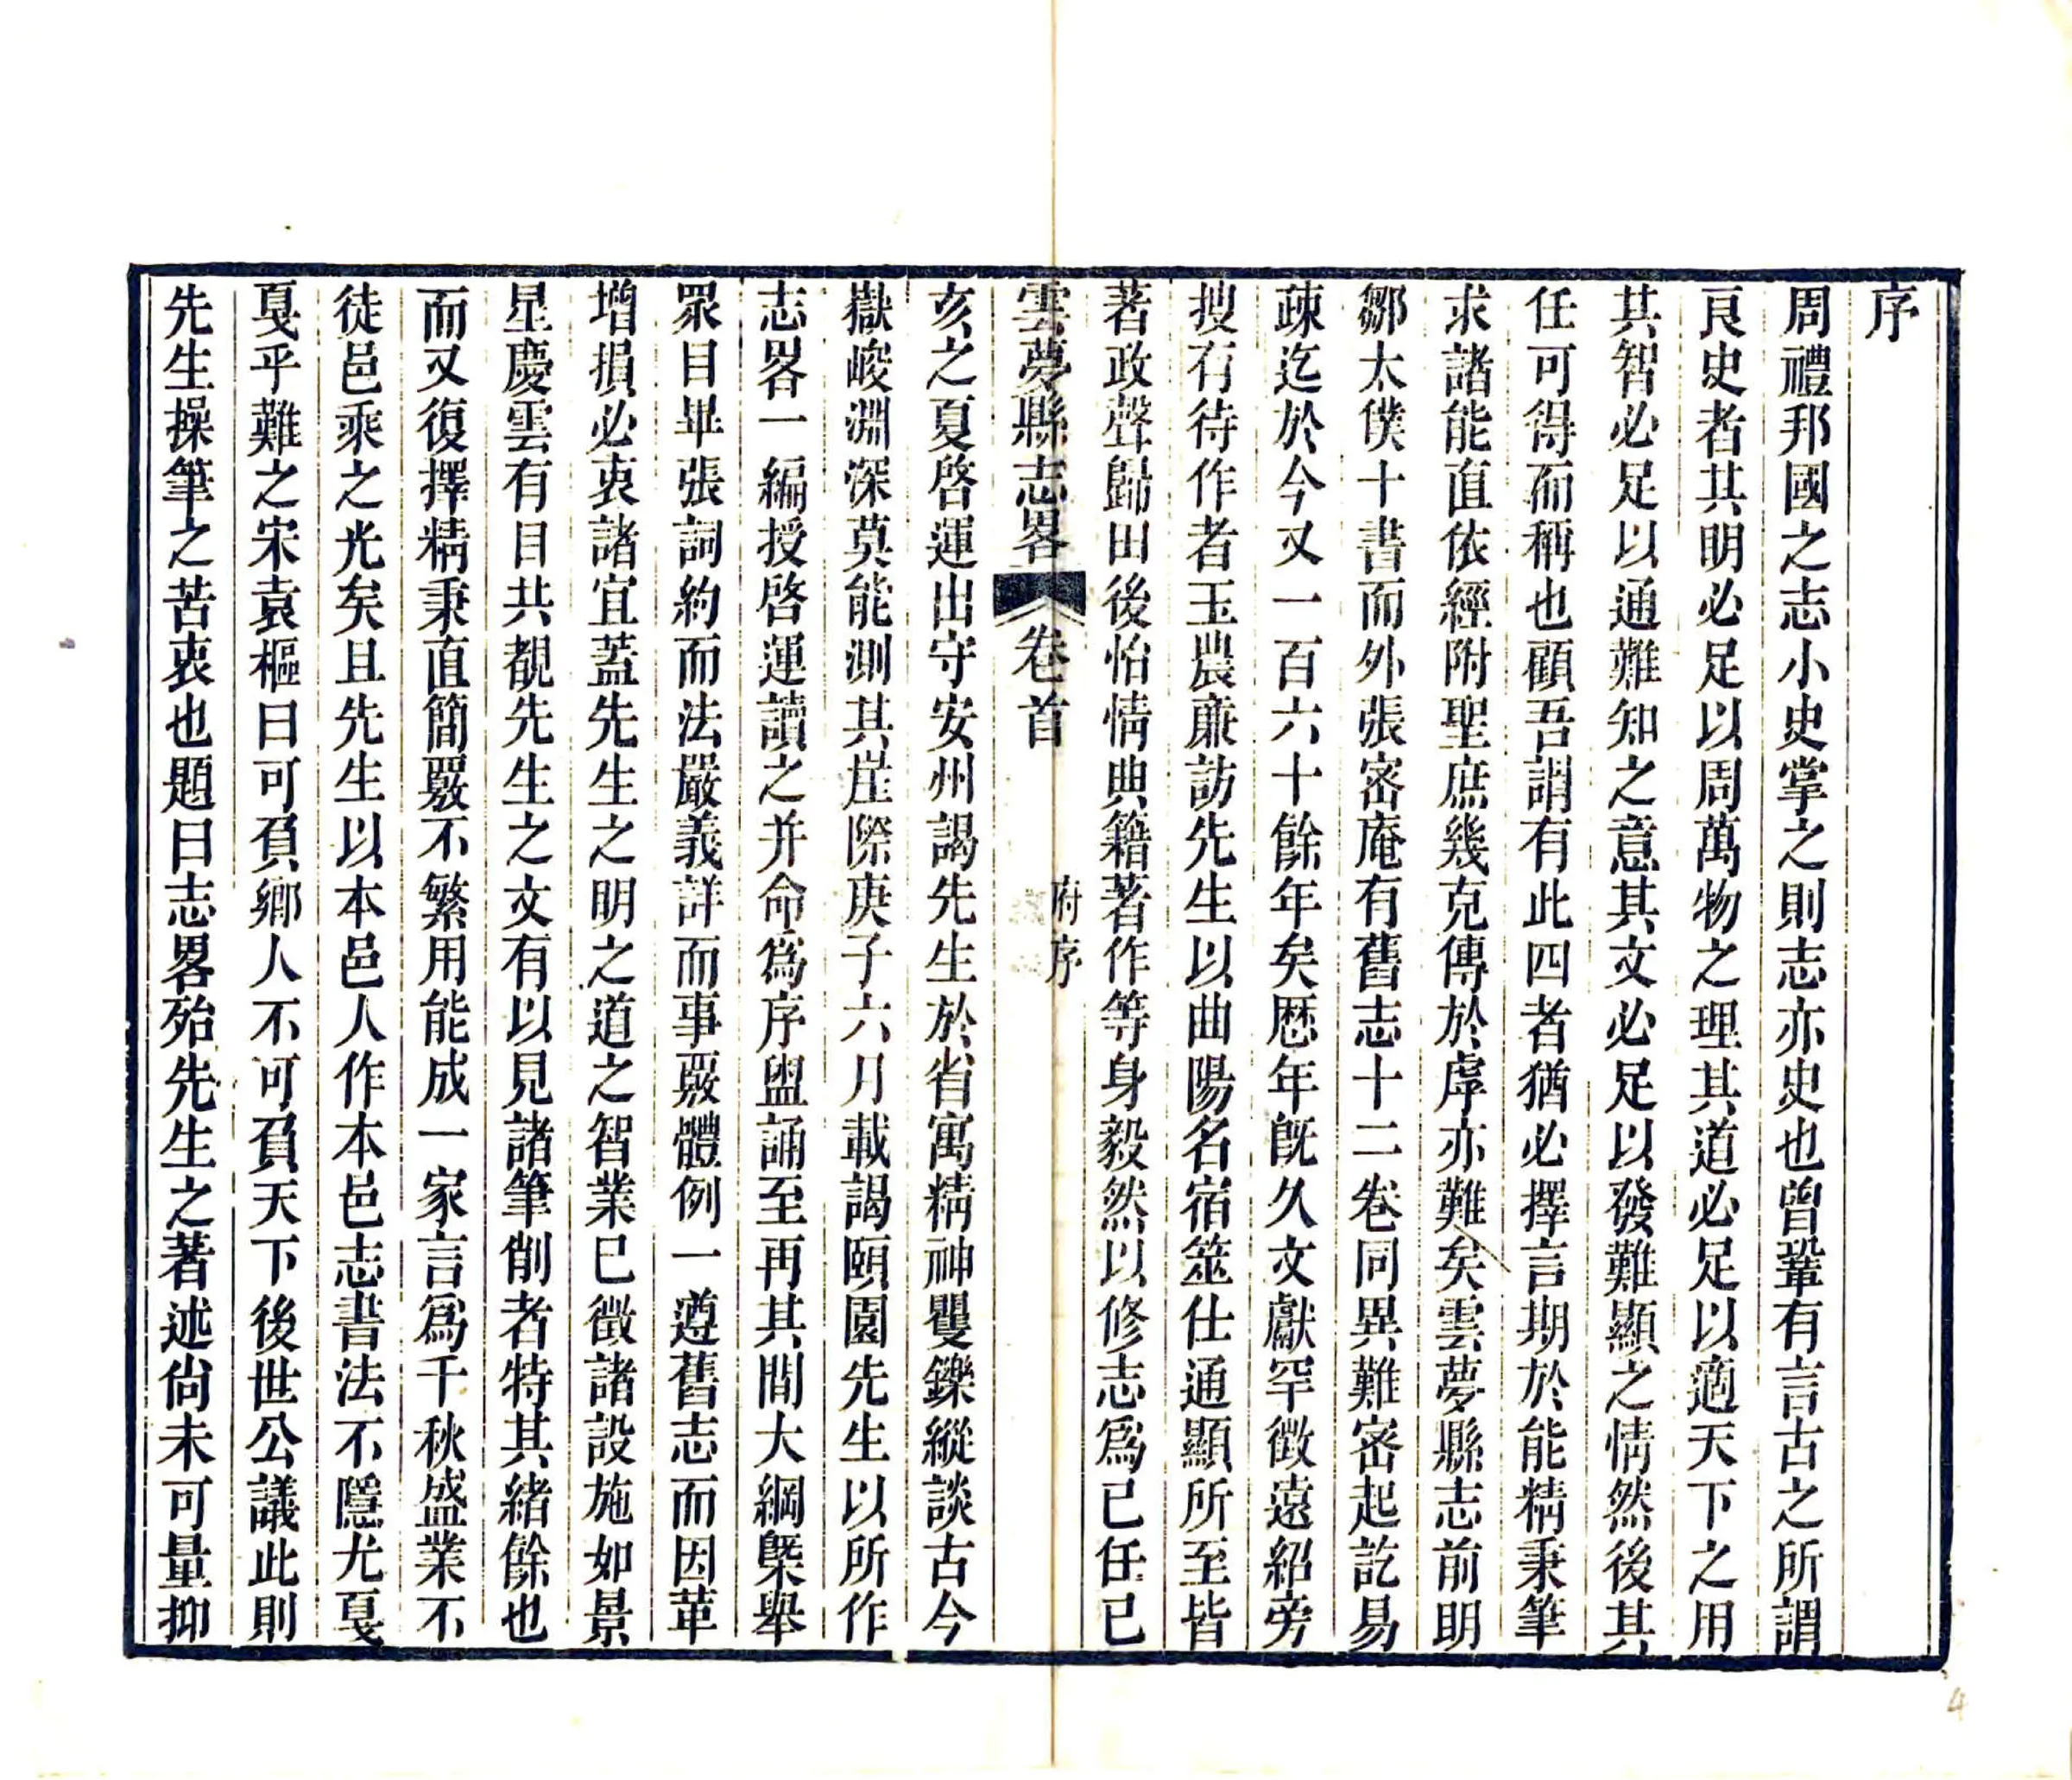 序
周禮邦國之志小史掌之則志亦史也曾鞏有言古之所謂
良史者其明必足以周萬物之理其道必足以適天下之用
其智必足以通難知之意其文必足以發難顯之情然後其
任可得而稱也顧吾謂有此四者猶必擇言期於能精秉筆
求諸能直依經附聖庶幾克傳於虖亦難矣雲夢縣志前明
鄒太僕十書而外張密庵有舊志十二卷同異難密起訖易
疎迄於今又一百六十餘年矣歷年旣久文獻罕徵遠紹旁
搜有待作者玉農廉訪先生以曲陽名宿筮仕通顯所至皆
著政聲歸田後怡情典籍著作等身毅然以修志爲已任已
雲夢縣志畧 卷首 府序
亥之夏啓運出守安州謁先生於省寓精神矍鑠縱談古今
嶽峻淵深莫能測其崖際庚子六月載謁頤園先生以所作
志畧一編授啓運讀之并命爲序盥誦至再其間大綱槩舉
眾目畢張詞約而法嚴義詳而事覈體例一遵舊志而因革
增損必衷諸宜蓋先生之明之道之智業已徵諸設施如景
星慶雲有目共覩先生之文有以見諸筆削者特其緒餘也
而又復擇精秉直簡覈不繁用能成一家言爲千秋盛業不
徒邑乘之光矣且先生以本邑人作本邑志書法不隱尤戛
戛乎難之宋袁樞曰可負鄉人不可負天下後世公議此則
先生操筆之苦衷也題曰志畧殆先生之著述尙未可量抑